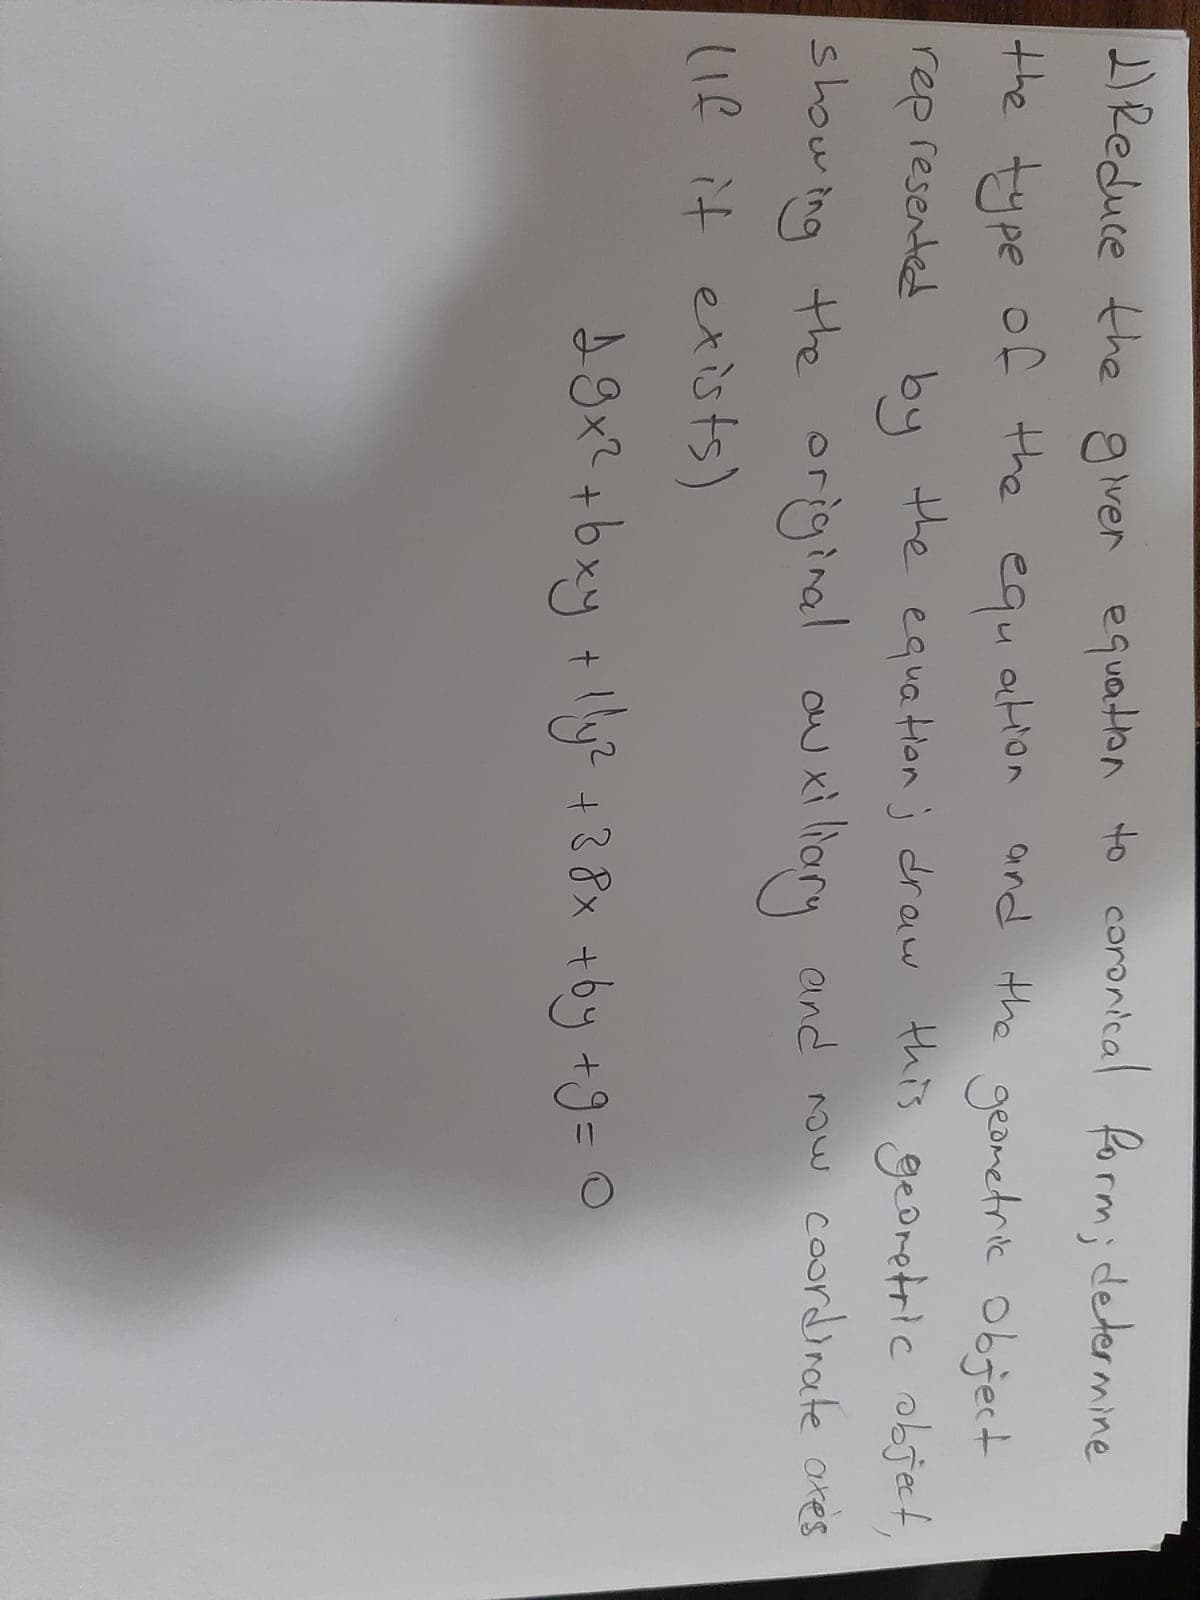 1) Reduce the given equation to coronical form; determine
the type of the equation and the geometric object
represented by the equation; draw this geometric object,
showing the original auxiliary and now coordinate axes
(If it exists)
19x² + 6xy + 11y² + 38x + 6y + 9 = 0